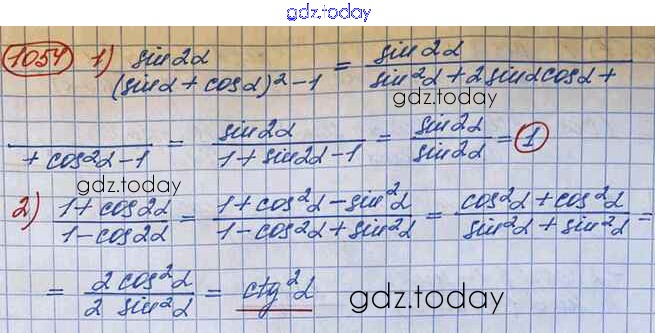 gdz.today
1054 1) sin2α / (sinα + cosα)² - 1 = sin2α / sin²α + 2sinαcosα +
gdz.today
/ + cos²α - 1 = sin2α / 1 + sin2α - 1 = sin2α / sin2α = 1
gdz.today
2) 1 + cos2α / 1 - cos2α = 1 + cos²α - sin²α / 1 - cos²α + sin²α = cos²α + cos²α / sin²α + sin²α =
= 2 cos²α / 2 sin²α = ctg²α
gdz.today